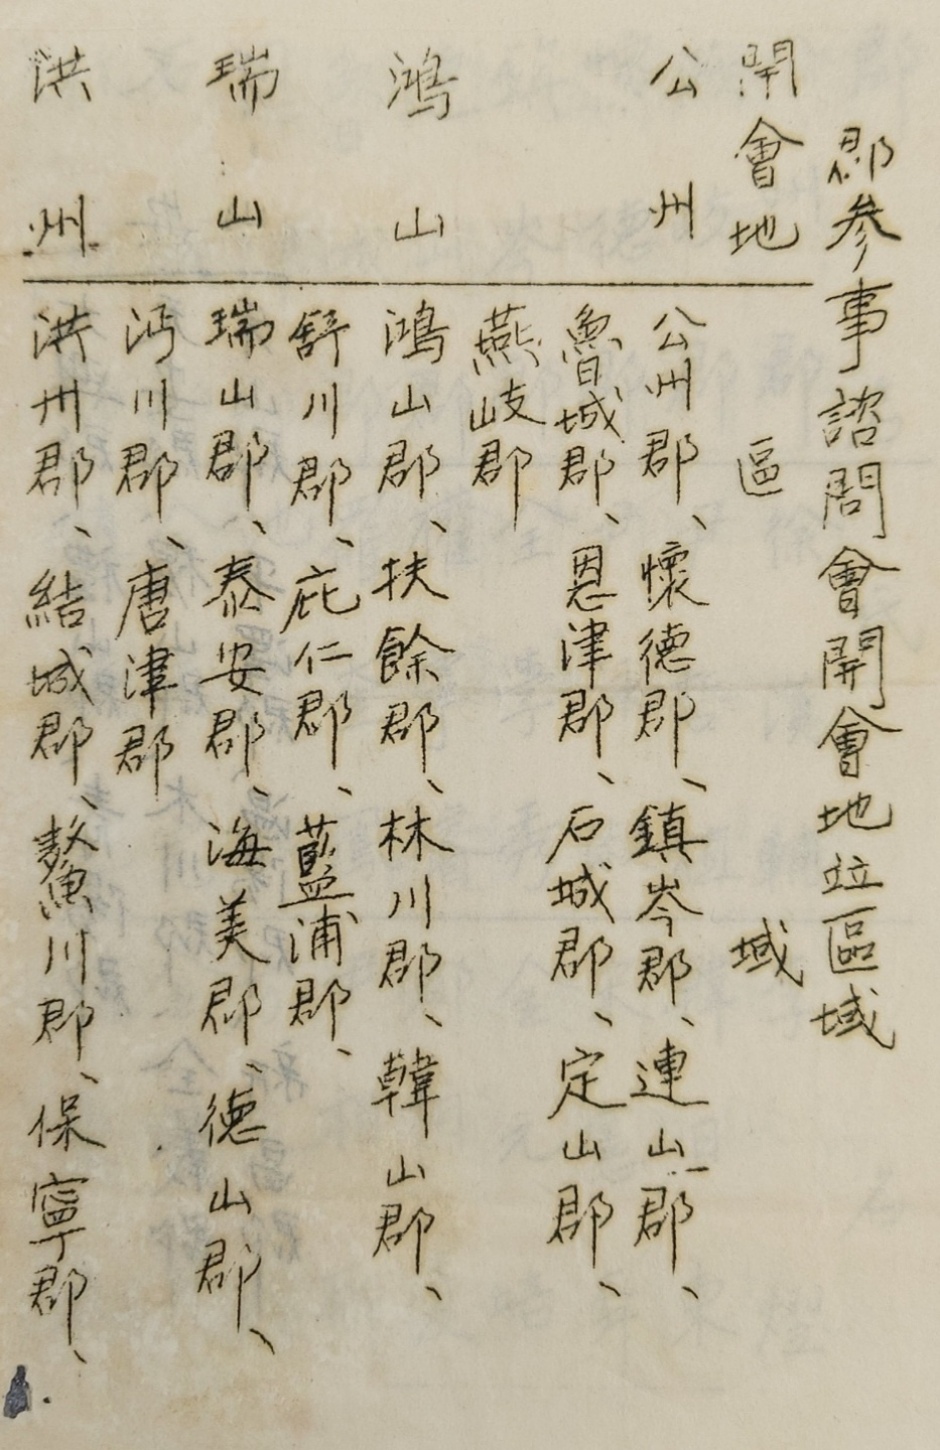 郡參事諮問會開會地竝區域
開會地　區　域
公州　公州郡、懷德郡、鎮岑郡、連山郡、
魯城郡、恩津郡、石城郡、定山郡、
燕岐郡
鴻山　鴻山郡、扶餘郡、林川郡、韓山郡、
舒川郡、庇仁郡、藍浦郡、
瑞山　瑞山郡、泰安郡、海美郡、德山郡、
沔川郡、唐津郡
洪州　洪州郡、結城郡、鰲川郡、保寧郡、